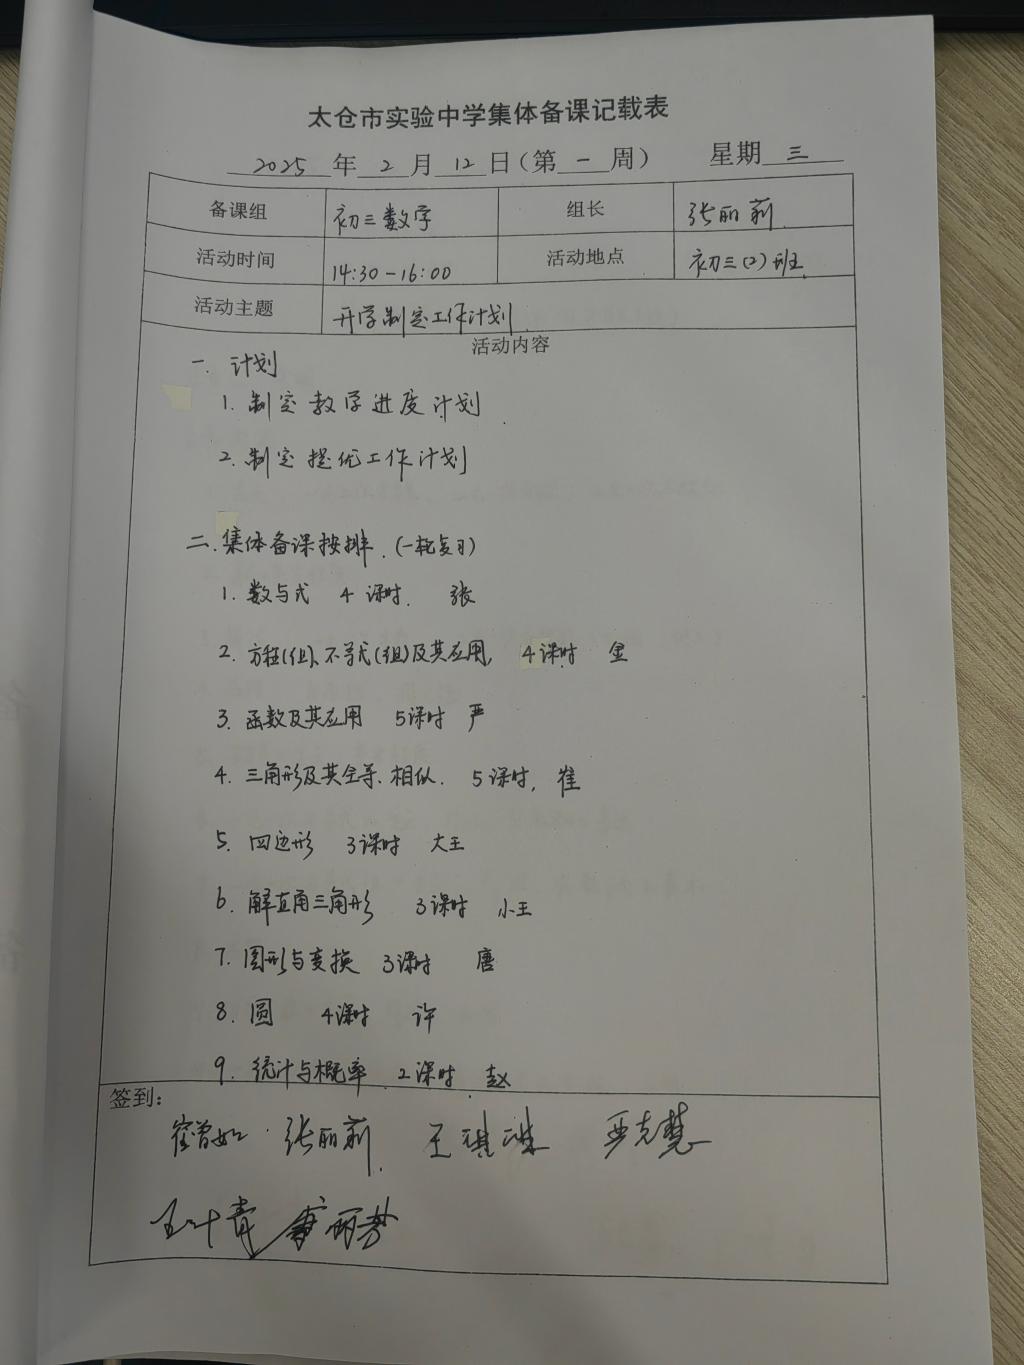 太仓市实验中学集体备课记载表
2025 年 2 月 12 日(第 一 周) 星期 三
备课组 初三数学 组长 张丽莉
活动时间 14:30-16:00 活动地点 初三(2)班
活动主题 开学制定工作计划
活动内容
一. 计划
1. 制定教学进度计划
2. 制定提优工作计划
二. 集体备课按排.(一轮复习)
1. 数与式 4课时. 张
2. 方程(组)、不等式(组)及其应用, 4课时 金
3. 函数及其应用 5课时 严
4. 三角形及其全等、相似. 5课时, 崔
5. 四边形 3课时 大王
6. 解直角三角形 3课时 小王
7. 图形与变换 3课时 唐
8. 圆 4课时 许
9. 统计与概率 2课时 赵
签到:
张丽莉